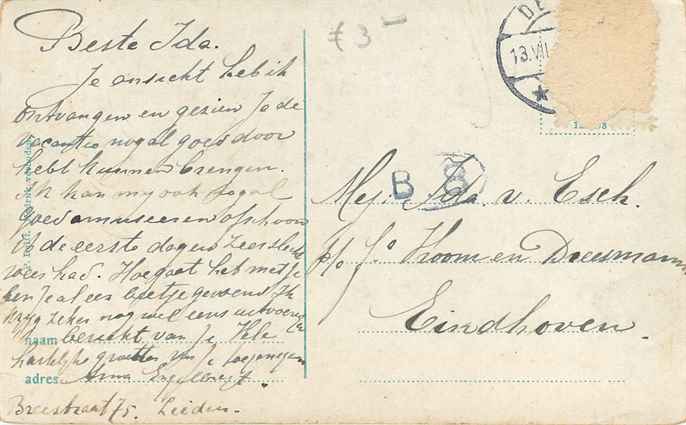 Beste Ida.
Je ansicht heb ik
ontvangen en gezien Je de
vacantie nogal goed door
hebt kunnen brengen.
Ik kan my ook nogal
goed amuseeren ofschoon
de eerste dagen zeer slecht
weer had. Hoe gaat het met je
ben je al een beetje gewend. Ik
zeker nog wel eens
naam bericht van je Vele
hartelijke groeten van je toegenegen
adres Anna Engelbregt.
Breestraat 75. Leiden.
£ 3 -
DE
13.VII
B 8
Mej. Ida. v. Esch.
p/o Fa Vroom en Dreesmann
Eindhoven.